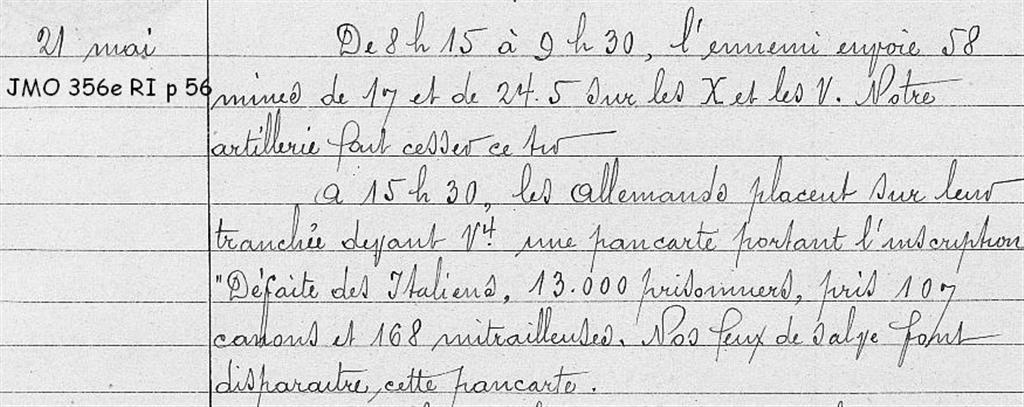 21 mai
JMO 356e RI p 56
De 8 h 15 à 9 h 30, l'ennemi envoie 58
mines de 17 et de 24.5 sur les X et les V. Notre
artillerie fait cesser ce tir
A 15 h 30, les Allemands placent sur leur
tranchée devant V4 une pancarte portant l'inscription
"Défaite des Italiens, 13.000 prisonniers, pris 107
canons et 168 mitrailleuses. Nos feux de salve font
disparaitre, cette pancarte.